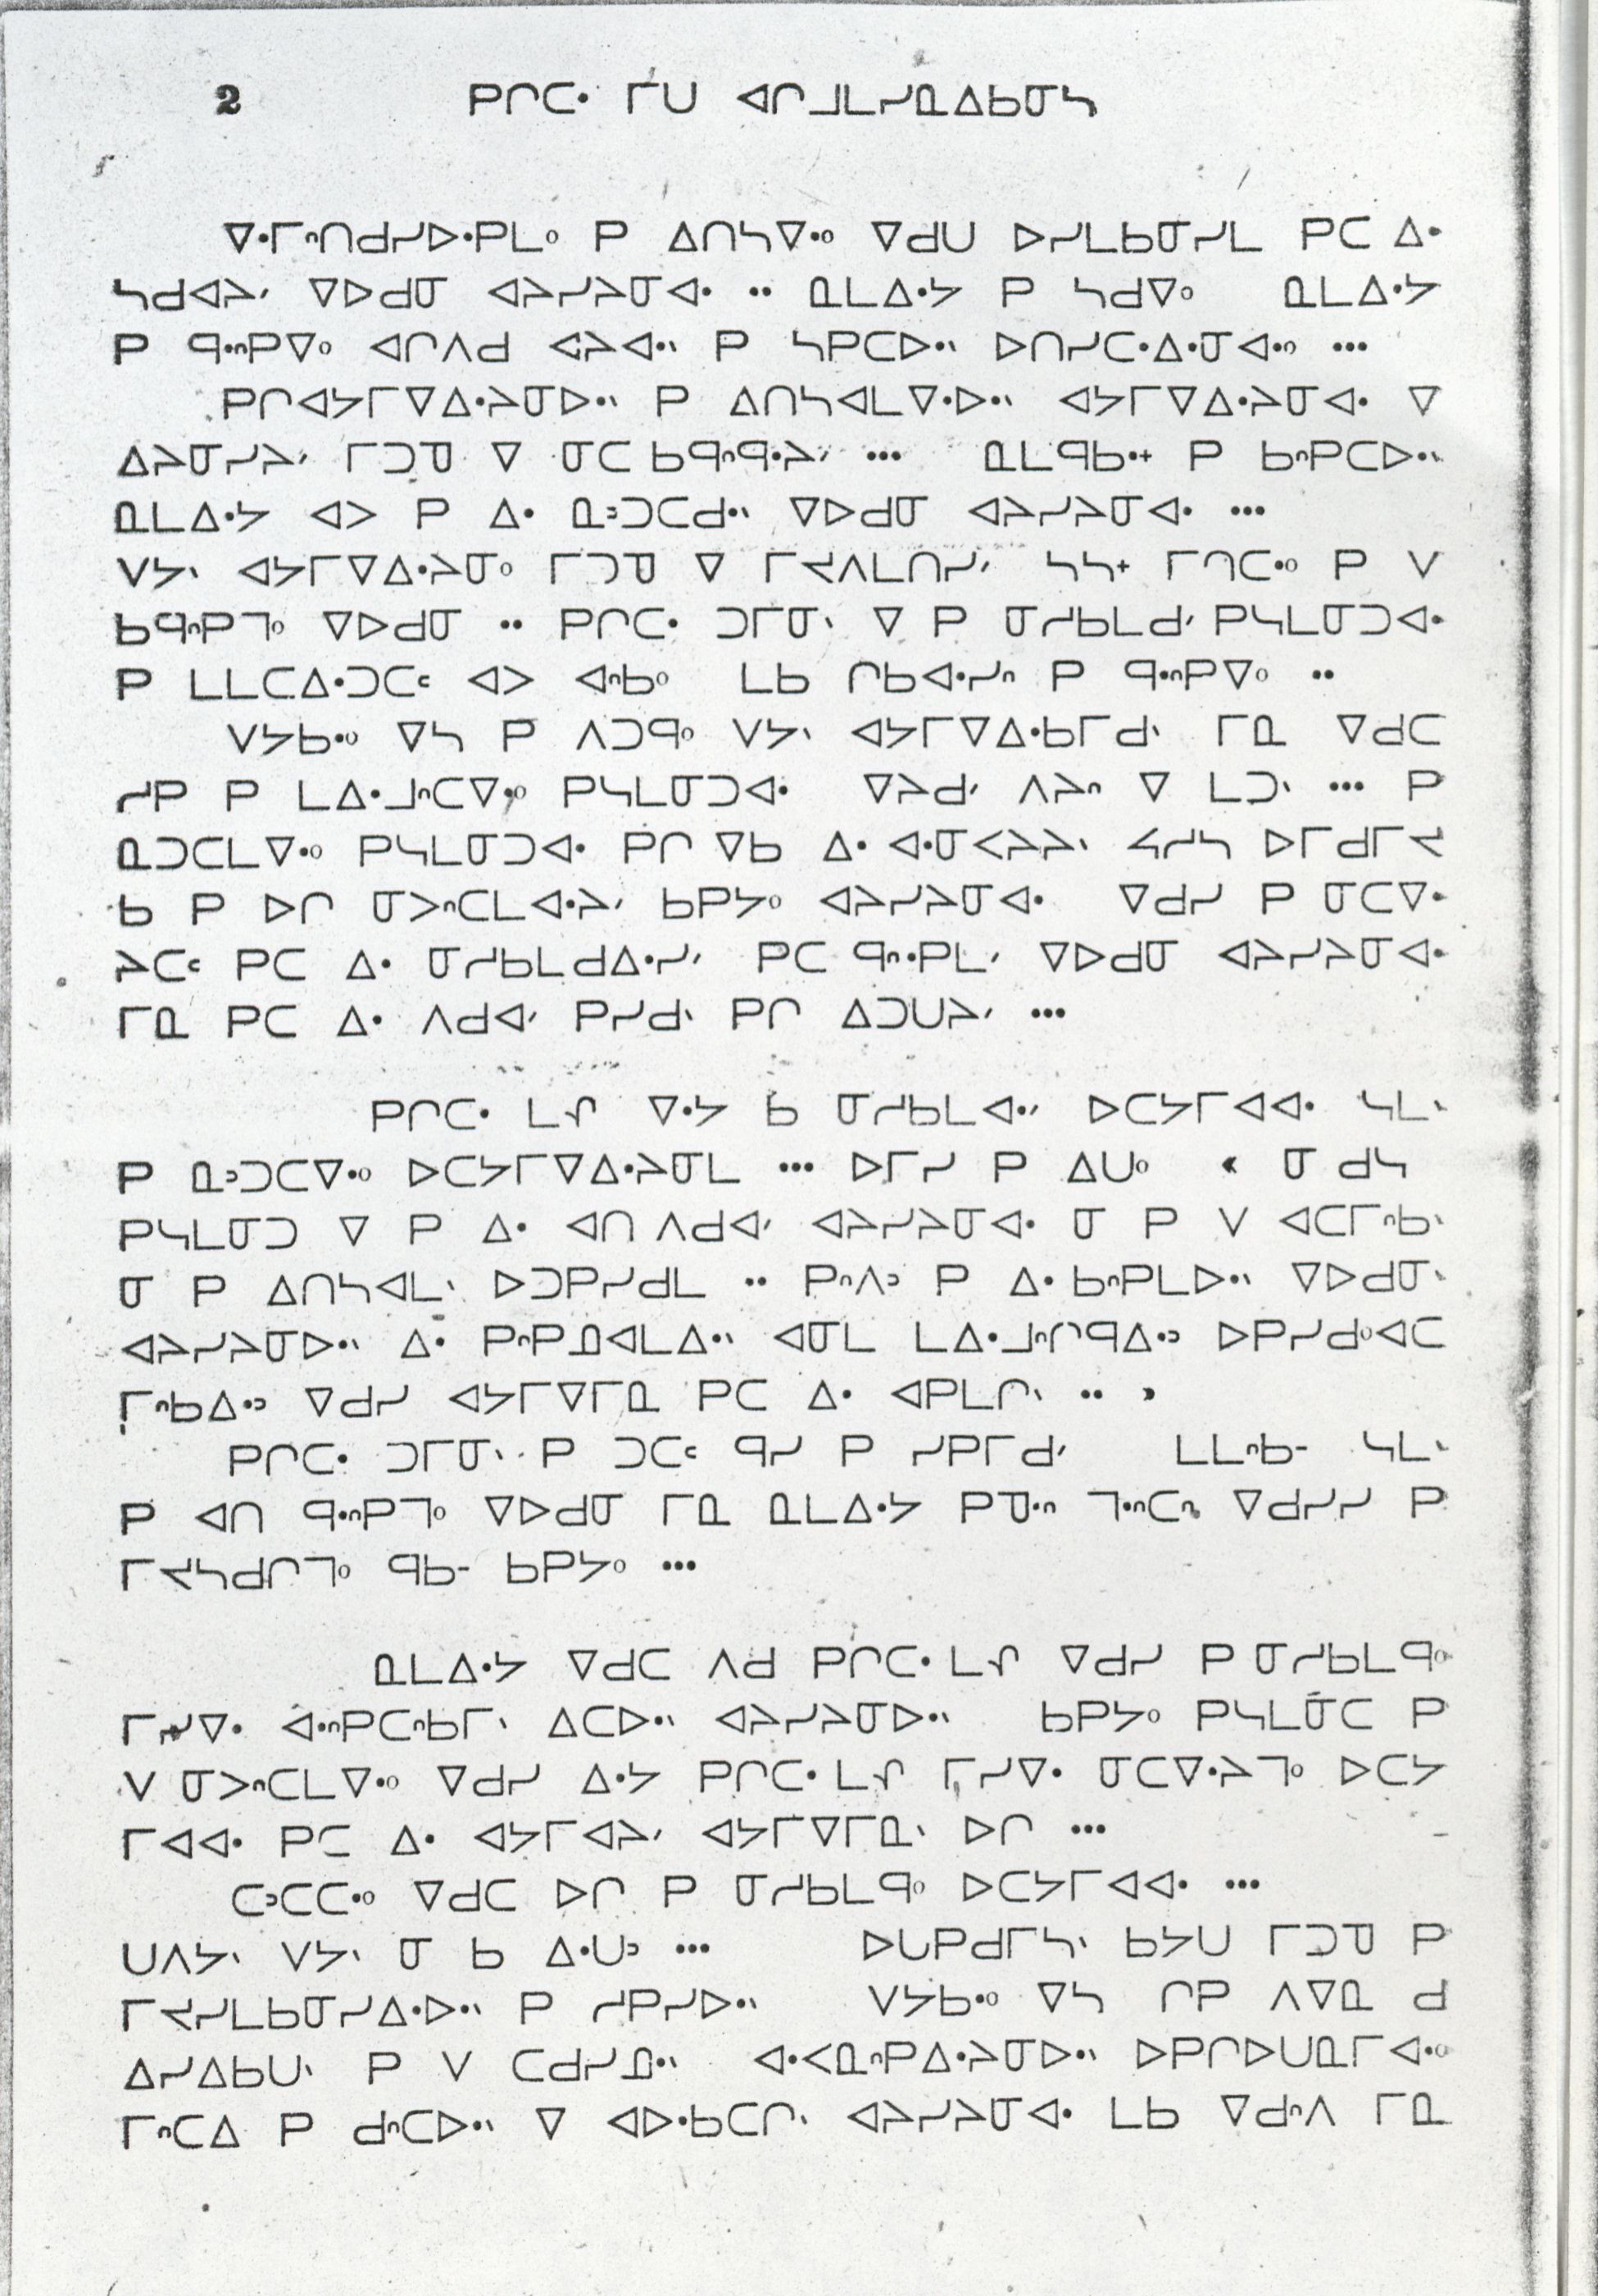 2 ᑭᒋᑕᐧ ᒥᑌ ᐊᒋᒧᒪᓯᓇᐃᑲᓂᓴ
ᐁᐧᒥᐢᑎᑯᓯᐅᐧᑭᒪᐤ ᑭ ᐃᑎᓴᐁᐧᐤ ᐁᑯᑌ ᐅᓯᒪᑲᓂᓯᒪ ᑭᑕ ᐃᐧ
ᓴᑯᐊᔨᐟ ᐁᐅᑯᓂ ᐊᔨᓯᔨᓂᐊᐧ ᐧᐧ ᓇᒪᐃᐧᔭ ᑭ ᓴᑯᐁᐤ ᓇᒪᐃᐧᔭ
ᑭ ᑫᐧᐢᑭᐁᐤ ᐊᒋᐱᑯ ᐊᔨᐊᐧᐠ ᑭ ᓴᑭᑕᐅᐧᐠ ᐅᑎᓯᑕᐧᐃᐧᓂᐊᐧᐤ ᐧᐧᐧ
ᑭᒋᐊᔭᒥᐁᐃᐧᔨᓂᐅᐧᐠ ᑭ ᐃᑎᓴᐊᒪᐁᐧᐅᐧᐠ ᐊᔭᒥᐁᐃᐧᔨᓂᐊᐧ ᐁ
ᐃᔨᓂᓯᔨᐟ ᒥᑐᓀ ᐁ ᓂᑕ ᑲᑫᐢᑫᐧᔨᐟ ᐧᐧᐧ ᓇᒪᑫᑲᐧᕀ ᑭ ᑲᐢᑭᑕᐅᐧᐠ
ᓇᒪᐃᐧᔭ ᐊᐳ ᑭ ᐃᐧ ᓇᐣᑐᑕᑯᐧᐠ ᐁᐅᑯᓂ ᐊᔨᓯᔨᓂᐊᐧ ᐧᐧᐧ
ᐯᔭᐠ ᐊᔭᒥᐁᐃᐧᔨᓂᐤ ᒥᑐᓀ ᐁ ᒥᔪᐱᒪᑎᓯᐟ ᓴᓴᕀ ᒥᑎᑕᐧᐤ ᑭ ᐯ
ᑲᑫᐢᑭᒣᐤ ᐁᐅᑯᓂ ᐧᐧ ᑭᒋᑕᐧ ᑐᒥᓂᐠ ᐁ ᑭ ᓂᓯᑲᒪᑯᐟ ᑭᓴᒪᓂᑐᐊᐧ
ᑭ ᒪᒪᑕᐃᐧᑐᑕᒼ ᐊᐳ ᐊᐧᐢᑲᐤ ᒪᑲ ᒋᑲᐊᐧᓯᐢ ᑭ ᑫᐧᐢᑭᐁᐤ ᐧᐧ
ᐯᔭᑲᐧᐤ ᐁᓴ ᑭ ᐱᑐᑫᐤ ᐯᔭᐠ ᐊᔭᒥᐁᐃᐧᑲᒥᑯᐠ ᒥᓇ ᐁᑯᑕ
ᓯᑭ ᑭ ᒪᐃᐧᒧᐢᑕᐁᐧᐤ ᑭᓴᒪᓂᑐᐊᐧ ᐁᔨᑯᐟ ᐱᔨᐢ ᐁ ᒪᑐᐠ ᐧᐧᐧ ᑭ
ᓇᑐᑕᒪᐁᐧᐤ ᑭᓴᒪᓂᑐᐊᐧ ᑭᒋ ᐁᑲ ᐃᐧ ᐊᐧᓂᐸᔨᔨᐠ ᓵᓯᓴ ᐅᒥᑯᒥᔪ
ᑲ ᑭ ᐅᒋ ᓂᐳᐢᑕᒪᐊᐧᔨᐟ ᑲᑭᔭᐤ ᐊᔨᓯᔨᓂᐊᐧ ᐁᑯᓯ ᑭ ᓂᑕᐁᐧ
ᔨᑕᒼ ᑭᑕ ᐃᐧ ᓂᓯᑲᒪᑯᐃᐧᓯᐟ ᑭᑕ ᑫᐢᐧᑭᒪᐟ ᐁᐅᑯᓂ ᐊᔨᓯᔨᓂᐊᐧ
ᒥᓇ ᑭᑕ ᐃᐧ ᐱᑯᐊᐟ ᑭᓯᑯᐠ ᑭᒋ ᐃᑐᑌᔨᐟ ᐧᐧᐧ
ᑭᒋᑕᐧ ᒪᕆ ᐁᐧᔭ ᑲ ᓂᓯᑲᒪᐊᐧᐟ ᐅᑕᔭᒥᐊᐊᐧ ᓴᒪᐠ
ᑭ ᓇᐣᑐᑕᐁᐧᐤ ᐅᑕᔭᒥᐁᐃᐧᔨᓂᒪ ᐧᐧᐧ ᐅᒥᓯ ᑭ ᐃᑌᐤ « ᓂ ᑯᓴ
ᑭᓴᒪᓂᑐ ᐁ ᑭ ᐃᐧ ᐊᑎ ᐱᑯᐊᐟ ᐊᔨᓯᔨᓂᐊᐧ ᓂ ᑭ ᐯ ᐊᑕᒥᐢᑲᐠ
ᓂ ᑭ ᐃᑎᓴᐊᒪᐠ ᐅᑐᑭᓯᑯᒪ ᐧᐧ ᑭᐢᐱᐣ ᑭ ᐃᐧ ᑲᐢᑭᒪᐅᐧᐠ ᐁᐅᑯᓂᐠ
ᐊᔨᓯᔨᓂᐅᐧᐠ ᐃᐧ ᑭᐢᑭᓄᐊᒪᐃᐧᐠ ᐊᓂᒪ ᒪᐃᐧᒧᐢᒋᑫᐃᐧᐣ ᐅᑭᓯᑯᐤᐊᑕ
ᒥᐢᑲᐃᐧᐣ ᐁᑯᓯ ᐊᔭᒥᐁᒥᓇ ᑭᑕ ᐃᐧ ᐊᑭᒪᒋᐠ ᐧᐧ »
ᑭᒋᑕᐧ ᑐᒥᓂᐠ ᑭ ᑐᑕᒼ ᑫᓯ ᑭ ᓯᑭᒥᑯᐟ ᒪᒪᐢᑲᐨ ᓴᒪᐠ
ᑭ ᐊᑎ ᑫᐧᐢᑭᒣᐤ ᐁᐅᑯᓂ ᒥᓇ ᓇᒪᐃᐧᔭ ᑭᓀᐧᐢ ᒣᐧᐢᑕᐢ ᐁᑯᓯᓯ ᑭ
ᒥᔪᓴᑯᒋᒣᐤ ᑫᑲᐨ ᑲᑭᔭᐤ ᐧᐧᐧ
ᓇᒪᐃᐧᔭ ᐁᑯᑕ ᐱᑯ ᑭᒋᑕᐧ ᒪᕆ ᐁᑯᓯ ᑭ ᓂᓯᑲᒪᑫᐤ
ᒥᓯᐁᐧ ᐊᐧᐢᑭᑕᐢᑲᒥᐠ ᐃᑕᐅᐧᐠ ᐊᔨᓯᔨᓂᐅᐧᐠ ᑲᑭᔭᐤ ᑭᓴᒪᓂᑕ ᑭ
ᐯ ᓂᐳᐢᑕᒪᐁᐧᐤ ᐁᑯᓯ ᐃᐧᔭ ᑭᒋᑕᐧ ᒪᕆ ᒥᓯᐁᐧ ᓂᑕᐁᐧᔨᒣᐤ ᐅᑕᔭ
ᒥᐊᐊᐧ ᑭᑕ ᐃᐧ ᐊᔭᒥᐊᔨᐟ ᐊᔭᒥᐁᒥᓇᐠ ᐅᒋ ᐧᐧᐧ
ᑕᐣᑕᑕᐧᐤ ᐁᑯᑕ ᐅᒋ ᑭ ᓂᓯᑲᒪᑫᐤ ᐅᑕᔭᒥᐊᐊᐧ ᐧᐧᐧ
ᑌᐱᔭᐠ ᐯᔭᐠ ᓂ ᑲ ᐃᐧᑌᐣ ᐧᐧᐧ ᐅᑌᑭᑯᒥᓴᐠ ᑲᔭᑌ ᒥᑐᓀ ᑭ
ᒥᔪᓯᒪᑲᓂᓯᐃᐧᐅᐧᐠ ᑭ ᓯᑭᓯᐅᐧᐠ ᐯᔭᑲᐧᐤ ᐁᓴ ᒋᑭ ᐱᐁᓇ ᑯ
ᐃᓯᐃᑲᑌᐠ ᑭ ᐯ ᑕᑯᓯᓄᐧᐠ ᐊᐧᐸᓇᐢᑭᐃᐧᔨᓂᐅᐧᐠ ᐅᑭᒋᐅᑌᓇᒥᐊᐧᐤ
ᒥᐢᑕᐃ ᑭ ᑯᐢᑕᐅᐧᐠ ᐁ ᐊᐅᐧᑲᑕᒋᐠ ᐊᔨᓯᔨᓂᐊᐧ ᒪᑲ ᐁᑯᐢᐱ ᒥᓇ